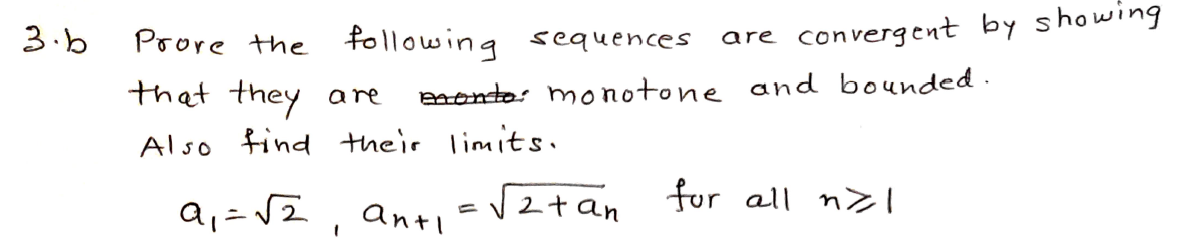 3.b Prove the following sequences are convergent by showing
that they are monotone and bounded.
Also find their limits.
a₁ = √2 , aₙ₊₁ = √(2+aₙ) for all n ≥ 1